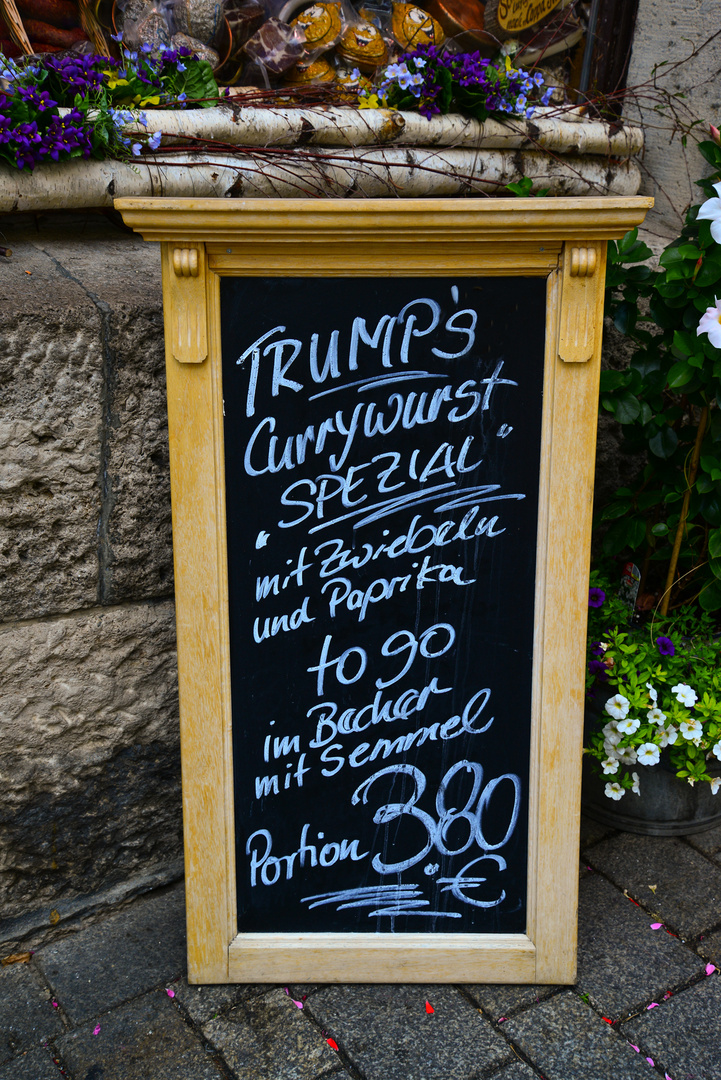 TRUMP's
Currywurst
"SPEZIAL"
mit Zwiebeln
und Paprika
to go
im Becher
mit Semmel
Portion 3.80
€